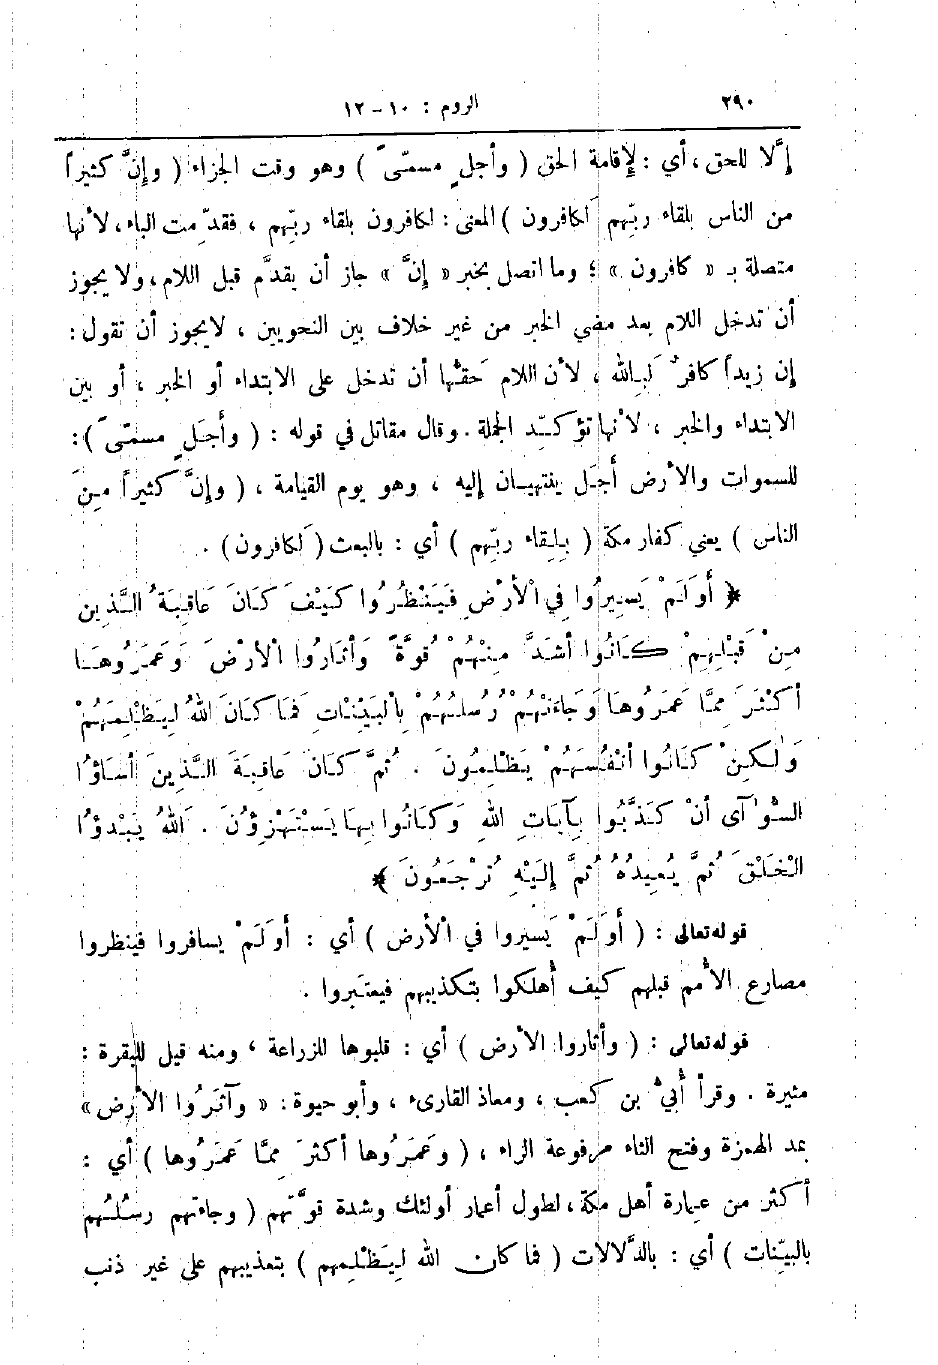 ٢٩٠ الروم : ١٠ – ١٢
إلَّا للحق ، أي : لإقامة الحق ( وأجلٍ مسمّىً ) وهو وقت الجزاء ( وإنَّ كثيراً
من الناس بلقاء ربِّهم لَكافرون ) المعنى : لكافرون بلقاء ربِّهم ، فقدِّمت الباء ، لأنها
متصلة بـ « كافرون » ؛ وما اتصل بخبر « إنَّ » جاز أن يقدَّم قبل اللام ، ولا يجوز
أن تدخل اللام بعد مضي الخبر من غير خلاف بين النحويين ، لا يجوز أن تقول :
إن زيداً كافرٌ لَبِالله ، لأن اللام حَقُّها أن تدخل على الابتداء أو الخبر ، أو بين
الابتداء والخبر ، لأنها تؤكِّد الجملة . وقال مقاتل في قوله : ( وأجَلٍ مسمّىً ) :
للسموات والأرض أجَل ينتهيان إليه ، وهو يوم القيامة ، ( وإنَّ كثيراً مِنَ
الناس ) يعني كفار مكة ( بِلِقاء ربِّهم ) أي : بالبعث ( لَكافرون ) .
﴿ أَوَلَمْ يَسِيرُوا فِي الْأَرْضِ فَيَنْظُرُوا كَيْفَ كَانَ عَاقِبَةُ الَّذِينَ
مِنْ قَبْلِهِمْ كَانُوا أَشَدَّ مِنْهُمْ قُوَّةً وَأَثَارُوا الْأَرْضَ وَعَمَرُوهَا
أَكْثَرَ مِمَّا عَمَرُوهَا وَجَاءَتْهُمْ رُسُلُهُمْ بِالْبَيِّنَاتِ فَمَا كَانَ اللهُ لِيَظْلِمَهُمْ
وَلٰكِنْ كَانُوا أَنْفُسَهُمْ يَظْلِمُونَ . ثُمَّ كَانَ عَاقِبَةَ الَّذِينَ أَسَاؤُا
السُّوآى أَنْ كَذَّبُوا بِآيَاتِ اللهِ وَكَانُوا بِهَا يَسْتَهْزِؤُنَ . اَللهُ يَبْدَؤُا
الْخَلْقَ ثُمَّ يُعِيدُهُ ثُمَّ إِلَيْهِ تُرْجَعُونَ ﴾
قوله تعالى : ( أَوَلَمْ يَسيروا في الْأرض ) أي : أَوَلَمْ يسافروا فينظروا
مصارع الأُمم قبلهم كيف أُهلكوا بتكذيبهم فيعتَبروا .
قوله تعالى : ( وأثاروا الأرض ) أي : قلبوها للزراعة ، ومنه قيل للبقرة :
مثيرة . وقرأ أُبيُّ بن كعب ، ومعاذ القارىء ، وأبو حيوة : « وآثَرُوا الأرض »
بمد الهمزة وفتح الثاء مرفوعة الراء ، ( وعَمَرُوها أكثرَ ممَّا عَمَرُوها ) أي :
أكثر من عِمارة أهل مكة ، لطول أعمار أولئك وشدة قوَّتهم ( وجاءتهم رسُلُهم
بالبيِّنات ) أي : بالدَّلالات ( فما كان الله لِيَظْلِمهم ) بتعذيبهم على غير ذنب